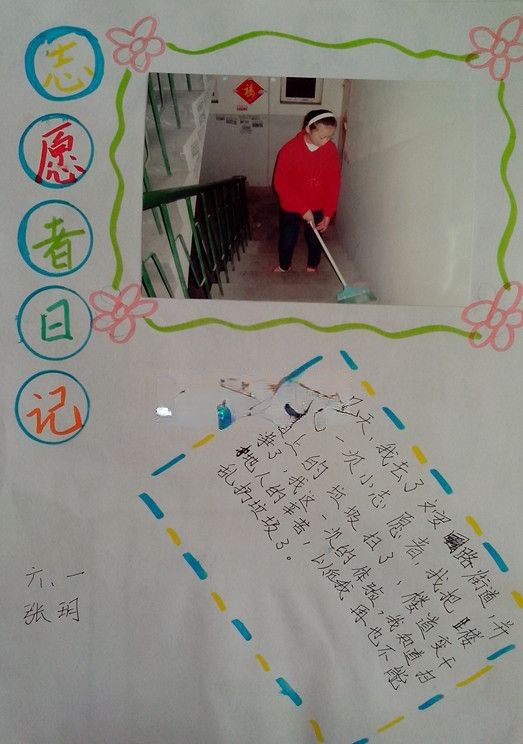 志愿者日记
福
今天,我去了文安路街道,并
一次小志愿者,我把楼
道上的垃圾扫了,楼道变干
净了,我这一次的体验,我知道扫
地人的辛苦,以后我再也不能
乱扔垃圾了。
六、一
张玥